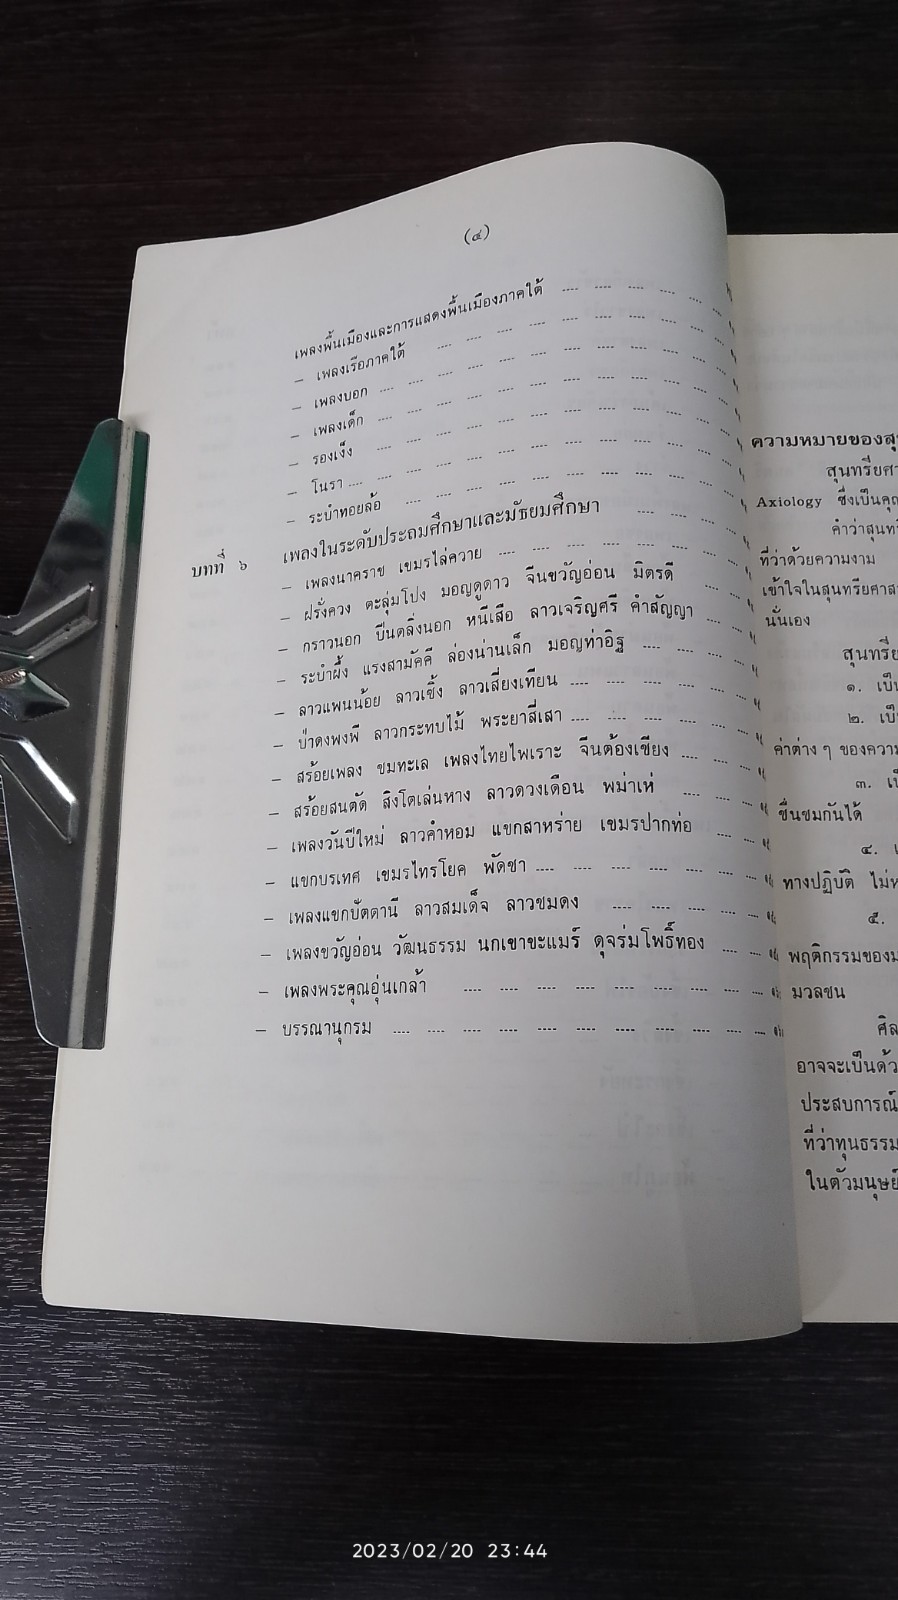 (๔)
เพลงพื้นเมืองและการแสดงพื้นเมืองภาคใต้ .... .... .... .... ....
– เพลงเรือภาคใต้ .... .... .... .... .... .... ....
– เพลงบอก .... .... .... .... .... .... .... ....
– เพลงเด็ก .... .... .... .... .... .... .... ....
– รองเง็ง .... .... .... .... .... .... .... ....
– โนรา .... .... .... .... .... .... .... .... ....
– ระบำทอยล้อ .... .... .... .... .... .... .... ....
บทที่ ๖ เพลงในระดับประถมศึกษาและมัธยมศึกษา .... .... ....
– เพลงนาคราช เขมรไล่ควาย .... .... .... .... .... ....
– ฝรั่งควง ตะลุ่มโปง มอญดูดาว จีนขวัญอ่อน มิตรดี .... ....
– กราวนอก บีนตลิ่งนอก หนีเสือ ลาวเจริญศรี คำสัญญา .... ....
– ระบำผึ้ง แรงสามัคคี ล่องน่านเล็ก มอญท่าอิฐ .... .... ....
– ลาวแพนน้อย ลาวเซิ้ง ลาวเสี่ยงเทียน .... .... .... .... ....
– ป่าดงพงพี ลาวกระทบไม้ พระยาสี่เสา .... .... .... .... ....
– สร้อยเพลง ชมทะเล เพลงไทยไพเราะ จีนต้องเซียง .... .... ....
– สร้อยสนตัด สิงโตเล่นหาง ลาวดวงเดือน พม่าเห่ .... .... ....
– เพลงวันปีใหม่ ลาวคำหอม แขกสาหร่าย เขมรปากท่อ .... ....
– แขกบรเทศ เขมรไทรโยค พัดชา .... .... .... .... .... ....
– เพลงแขกบัตตานี ลาวสมเด็จ ลาวชมดง .... .... .... ....
– เพลงขวัญอ่อน วัฒนธรรม นกเขาขะแมร์ ดุจร่มโพธิ์ทอง .... ....
– เพลงพระคุณอุ่นเกล้า .... .... .... .... .... .... .... ....
– บรรณานุกรม .... .... .... .... .... .... .... .... .... ....
ความหมายของ
Axiology ซึ่งเป็น
ที่ว่าด้วยความงาม
เข้าใจในสุนทรียศาส
นั่นเอง
สุนทรีย
๑.
๒.
ค่าต่าง ๆ ของความ
๓.
ชื่นชมกันได้
๔.
ทางปฏิบัติ
๕.
พฤติกรรมของ
มวลชน
อาจจะเป็น
ประสบการณ์
ที่ว่าทุนธรรม
ในตัวมนุษย์
2023/02/20 23:44